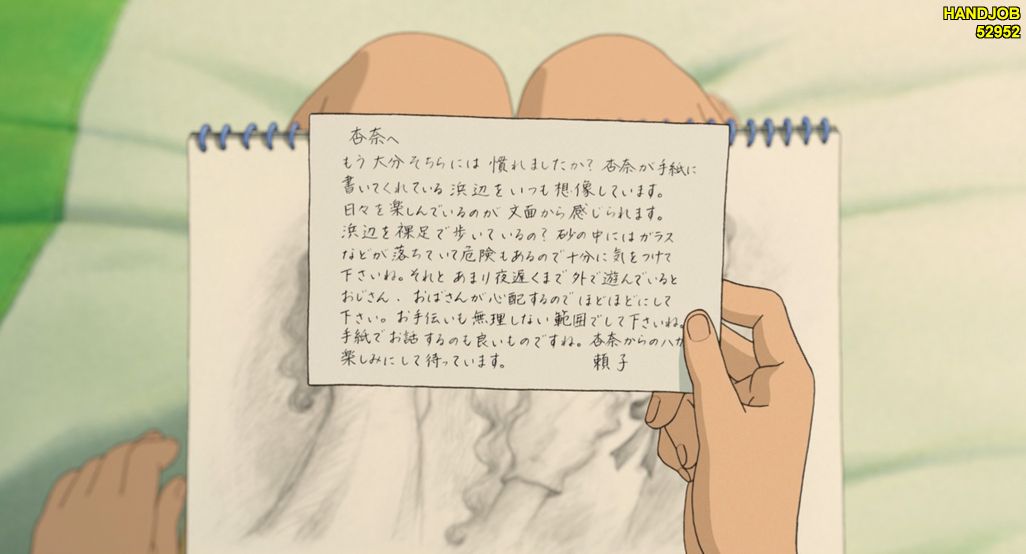 HANDJOB
52952
杏奈へ
もう大分そちらには慣れましたか？杏奈が手紙に
書いてくれている浜辺をいつも想像しています。
日々を楽しんでいるのが文面から感じられます。
浜辺を裸足で歩いているの？砂の中にはガラス
などが落ちていて危険もあるので十分に気をつけて
下さいね。それとあまり夜遅くまで外で遊んでいると
おじさん、おばさんが心配するのでほどほどにして
下さい。お手伝いも無理しない範囲でして下さいね。
手紙でお話するのも良いものですね。杏奈からのハガ
楽しみにして待っています。
頼子